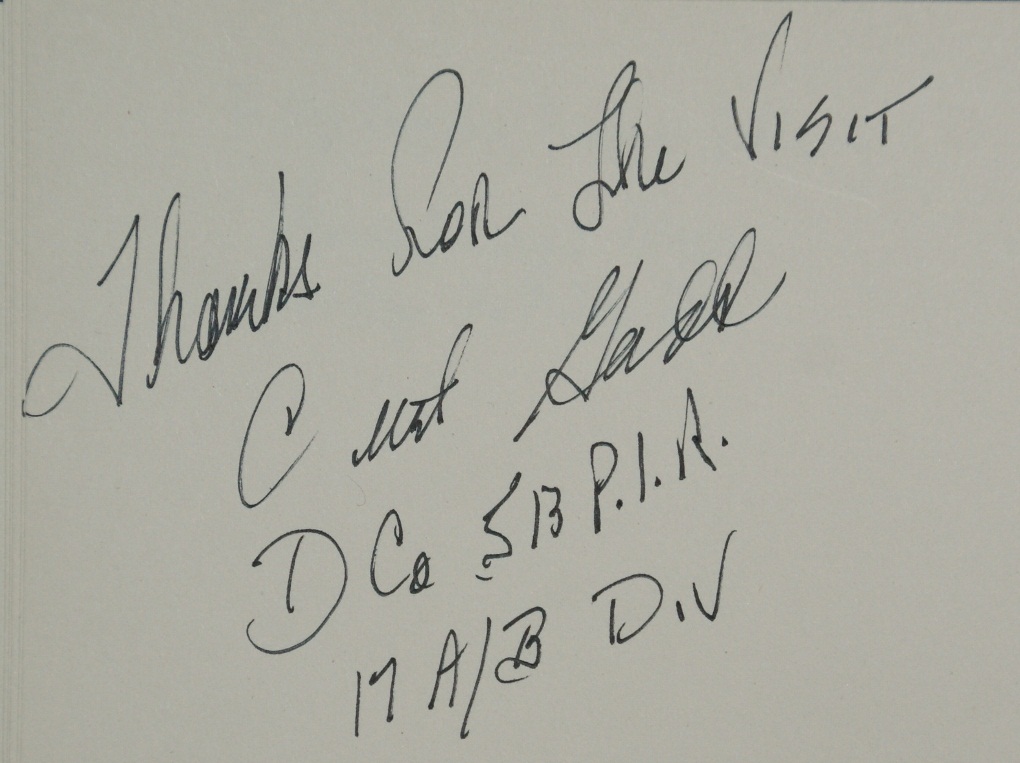 Thanks For The VISIT
Curt Gadd
D Co 513 P.I.R.
17 A/B DIV